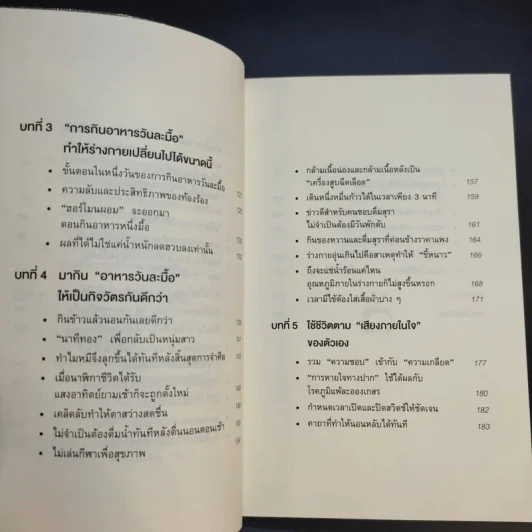 บทที่ 3 "การกินอาหารวันละมื้อ"
ทำให้ร่างกายเปลี่ยนไปได้ขนาดนี้
• ขั้นตอนในหนึ่งวันของการกินอาหารวันละมื้อ
• ความลับและประสิทธิภาพของท้องร้อง
• "ฮอร์โมนผอม" จะออกมา
ตอนกินอาหารหนึ่งมื้อ
• ผลที่ได้ไม่ใช่แค่น้ำหนักลดฮวบลงเท่านั้น
บทที่ 4 มากิน "อาหารวันละมื้อ"
ให้เป็นกิจวัตรกันดีกว่า
• กินข้าวแล้วนอนกันเลยดีกว่า
• "นาทีทอง" เพื่อกลับเป็นหนุ่มสาว
• ทำไมหมีจึงลุกขึ้นได้ทันทีหลังสิ้นสุดการจำศีล
• เมื่อนาฬิกาชีวิตได้รับ
แสงอาทิตย์ยามเช้าก็จะถูกตั้งใหม่
• เคล็ดลับทำให้ตาสว่างสดชื่น
• ไม่จำเป็นต้องดื่มน้ำทันทีหลังตื่นนอนตอนเช้า
• ไม่เล่นกีฬาเพื่อสุขภาพ
• กล้ามเนื้อน่องและกล้ามเนื้อหลังเป็น
"เครื่องสูบฉีดเลือด" 157
• เดินหนึ่งหมื่นก้าวได้ในเวลาเพียง 3 นาที 159
• ข่าวดีสำหรับคนชอบดื่มสุรา
ไม่จำเป็นต้องมีวันพักตับ 161
• กินของหวานและดื่มสุราที่ค่อนข้างราคาแพง 164
• ร่างกายอุ่นเกินไปคือสาเหตุทำให้ "ขี้หนาว" 166
• ถึงจะแช่น้ำร้อนแค่ไหน
อุณหภูมิภายในร่างกายก็ไม่สูงขึ้นหรอก 168
• เวลามีไข้ต้องใส่เสื้อผ้าบาง ๆ 171
บทที่ 5 ใช้ชีวิตตาม "เสียงภายในใจ"
ของตัวเอง
• รวม "ความชอบ" เข้ากับ "ความเกลียด" 177
• "การหายใจทางปาก" ใช้ได้ผลกับ
โรคภูมิแพ้ละอองเกสร 180
• กำหนดเวลาเปิดและปิดสวิตช์ให้ชัดเจน 182
• คาถาที่ทำให้นอนหลับได้ทันที 183